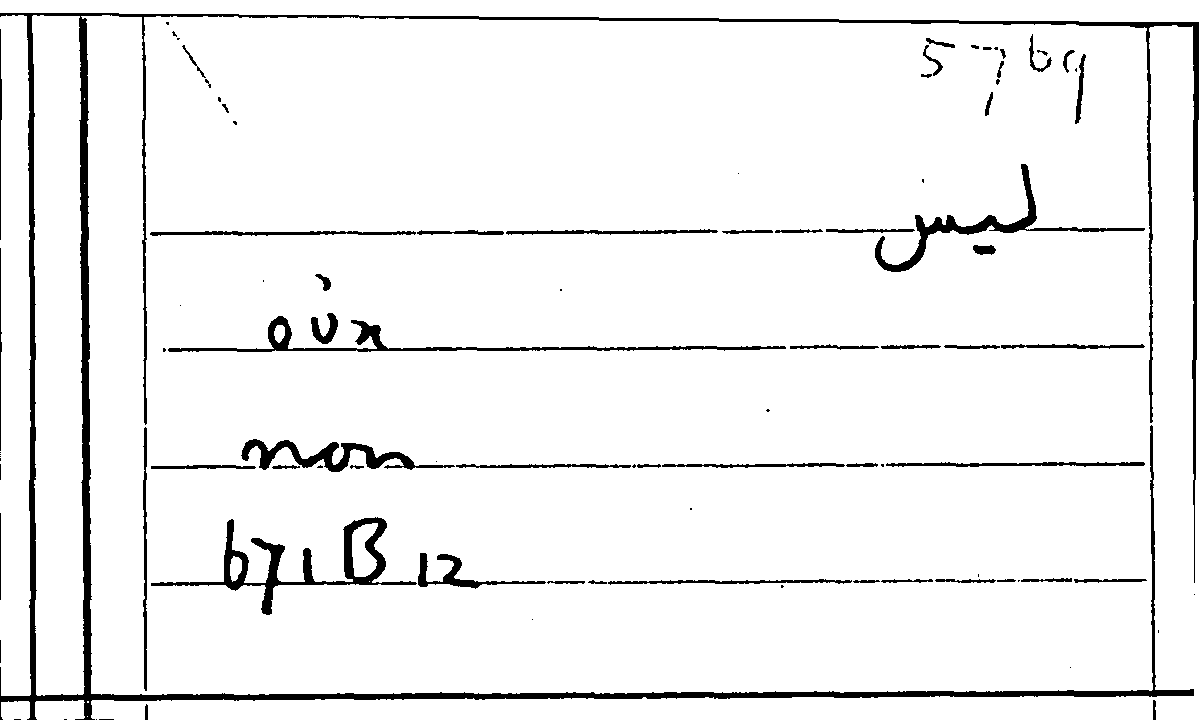 5769
ليس
οὐκ
non
671 B 12